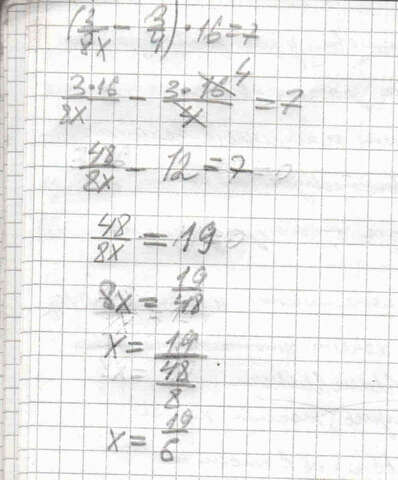 (3/8x - 3/4) · 16 = 7
3·16/8x - 3·16/4 4 = 7
48/8x - 12 = 7
48/8x = 19
8x = 19/48
x = 19/(48/8)
x = 19/6